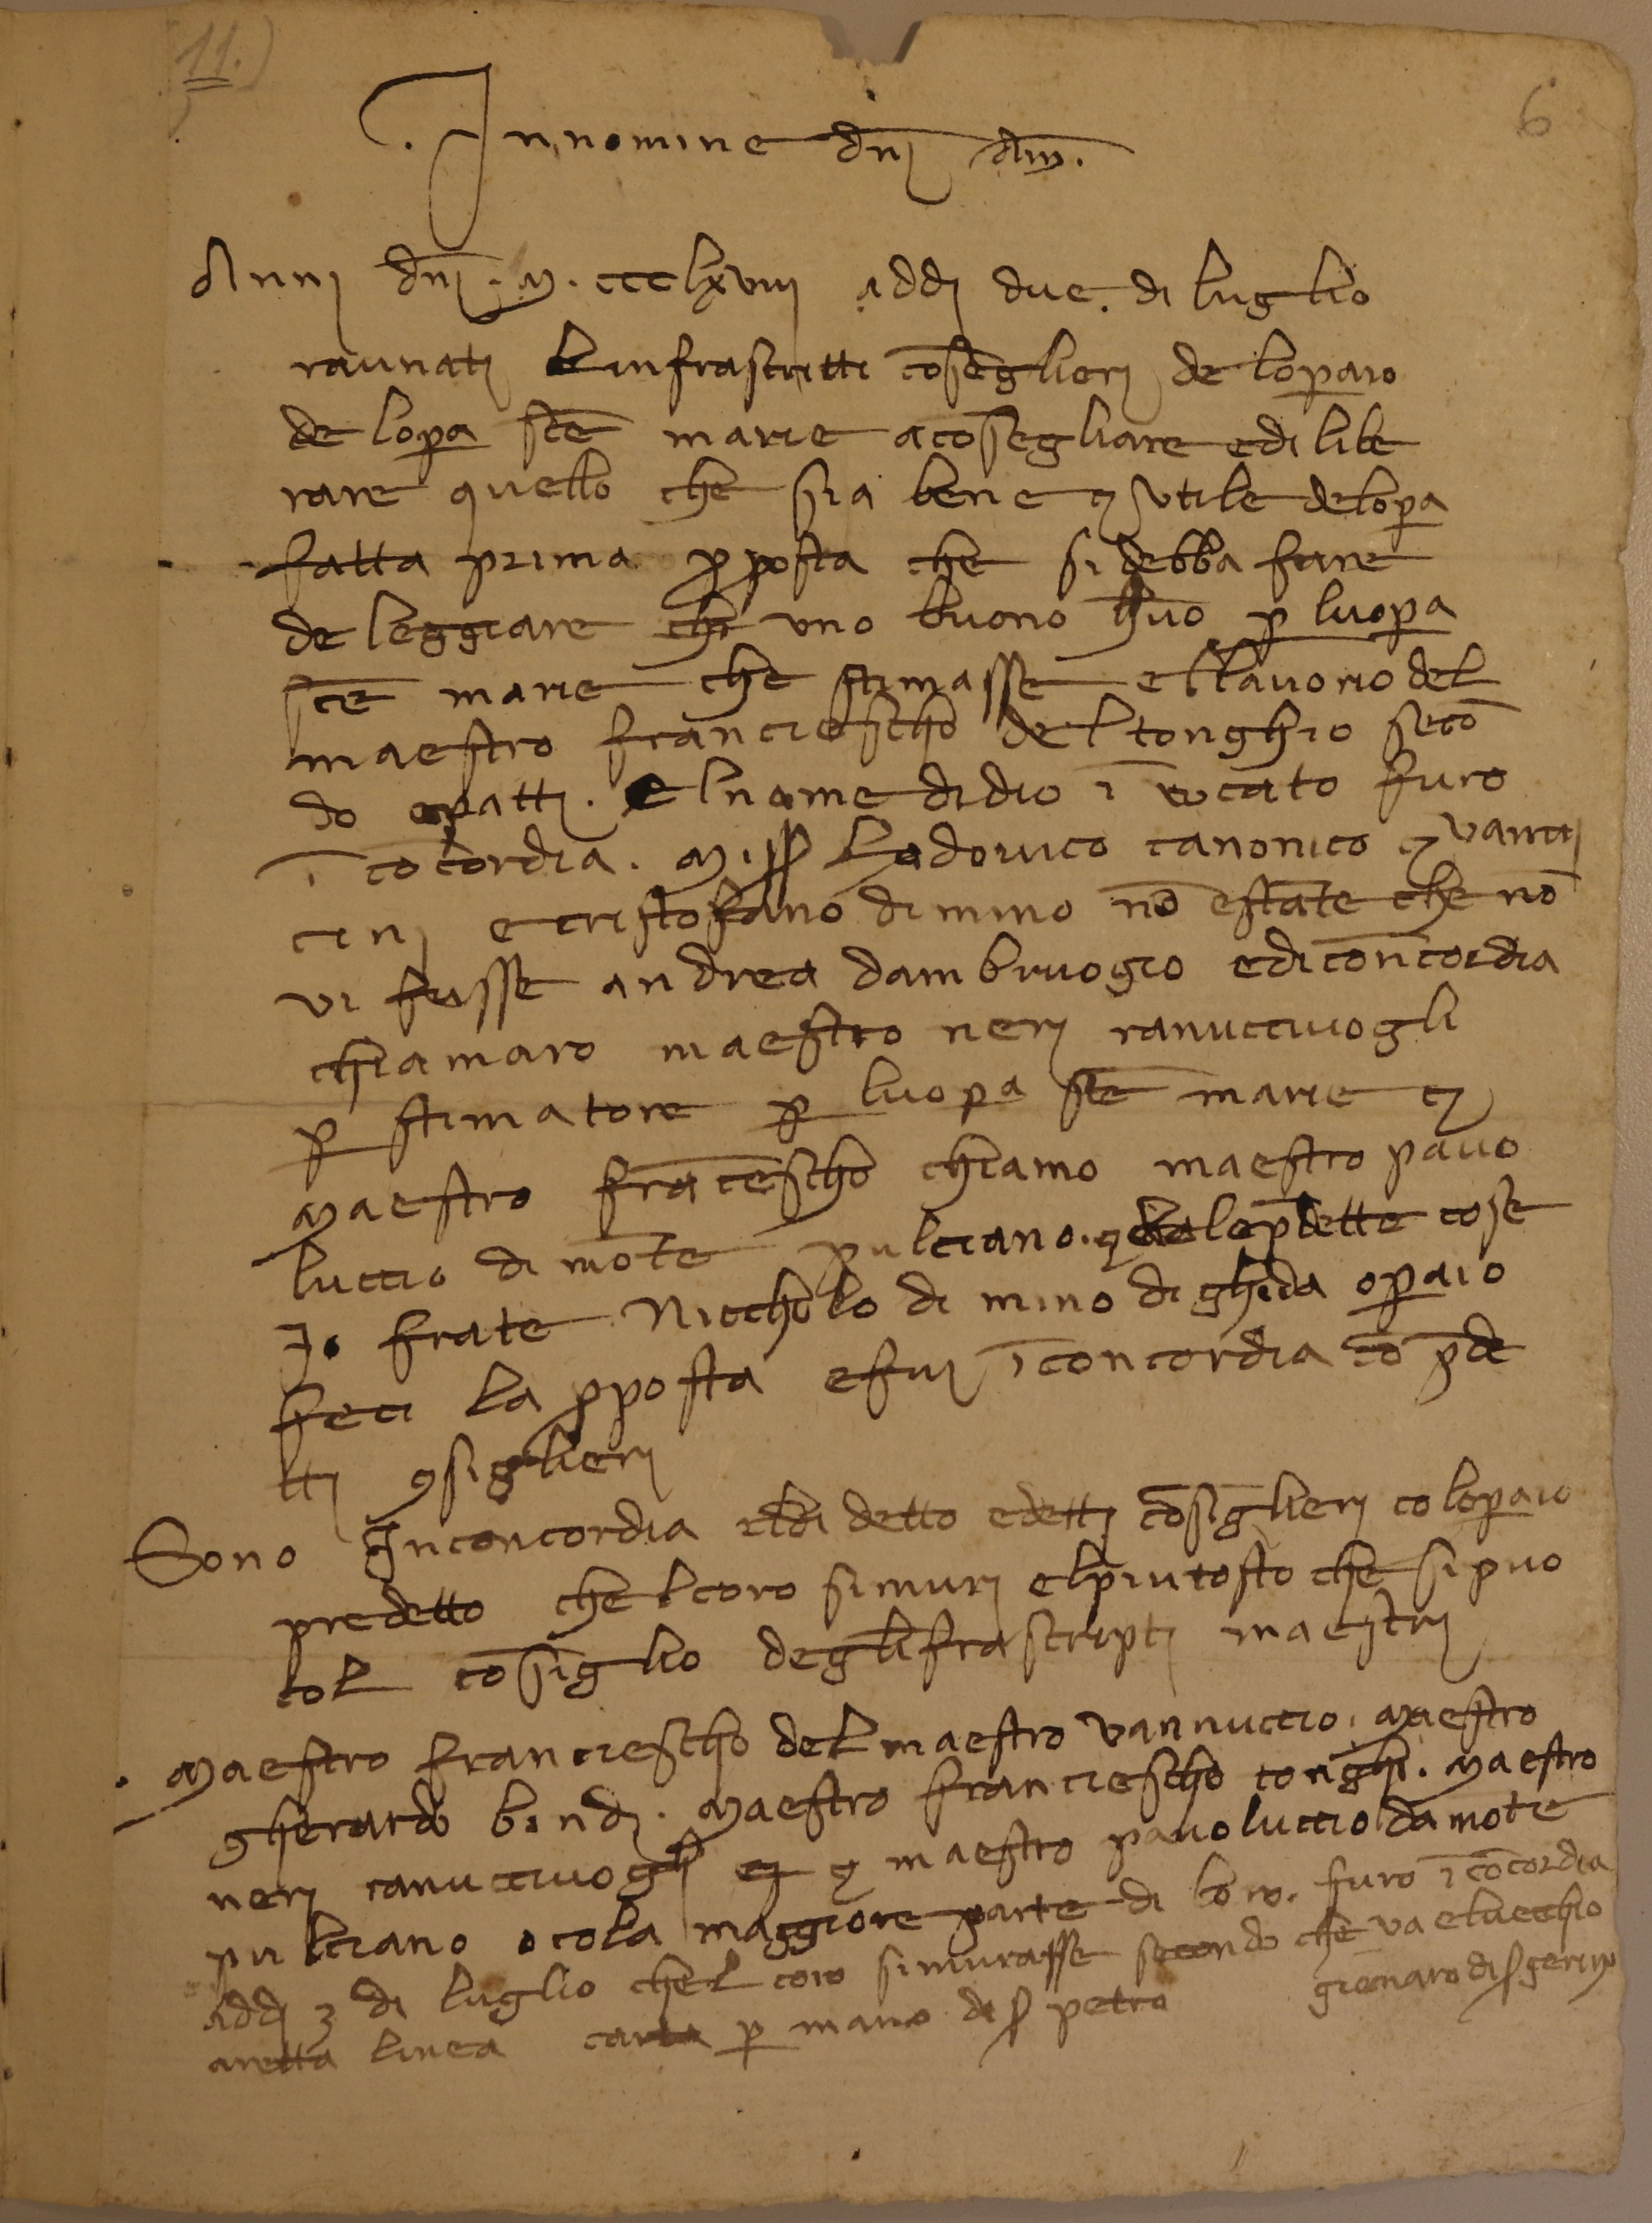 11.)
6
In nomine dnj am.
Annj dnj. M. ccclxviij addj due. di luglio
raunatj le infrascritti cōsēglierj de lopaio
de lopa sce marie a cōsegliare e dilibe
rare quello che sia bene e utile delopa
fatta prima pposta che si debba fare
de leggiare uno buono huō p luopa
sce marie che stimasse el lavorio del
maestro franciescho del tonghio secō
do epattj. El nome di dio ī vocato furo
ī cōcordia. M. ss Lodovico canonico e vanuj
cinj e cristofano di mino nō estāte che nō
vi fusse andrea dambruogio e di concordia
chiamaro maestro nerj ranuccivogli
p stimatore p luopa sce marie e
Maestro frācescho chiamo maestro pavo
luccio di mōte pulciano. e dele pdette cose
Io frate Niccholo di mino di ghida opaio
feci la pposta e fuj ī concordia cō pde
ttj ɔsiglierj
Sono Inconcordia el di detto e dettj cōsiglierj co lopaio
predetto chel coro si murj el piu tosto che si puo
col cōsiglio deglifrascriptj maestrj
Maestro franciescho del maestro vannuccio. Maestro
gherardo bindj. Maestro franciescho tonghi. Maestro
nerj ranuccivoglj e maestro pavoluccio da mōte
pulciano o cola maggiore parte di loro. furo ī cōcordia
addj 3 di luglio chel coro si murasse secondo che va el vecchio
a retta linea carta p mano di s petro giēnaro di s gerino